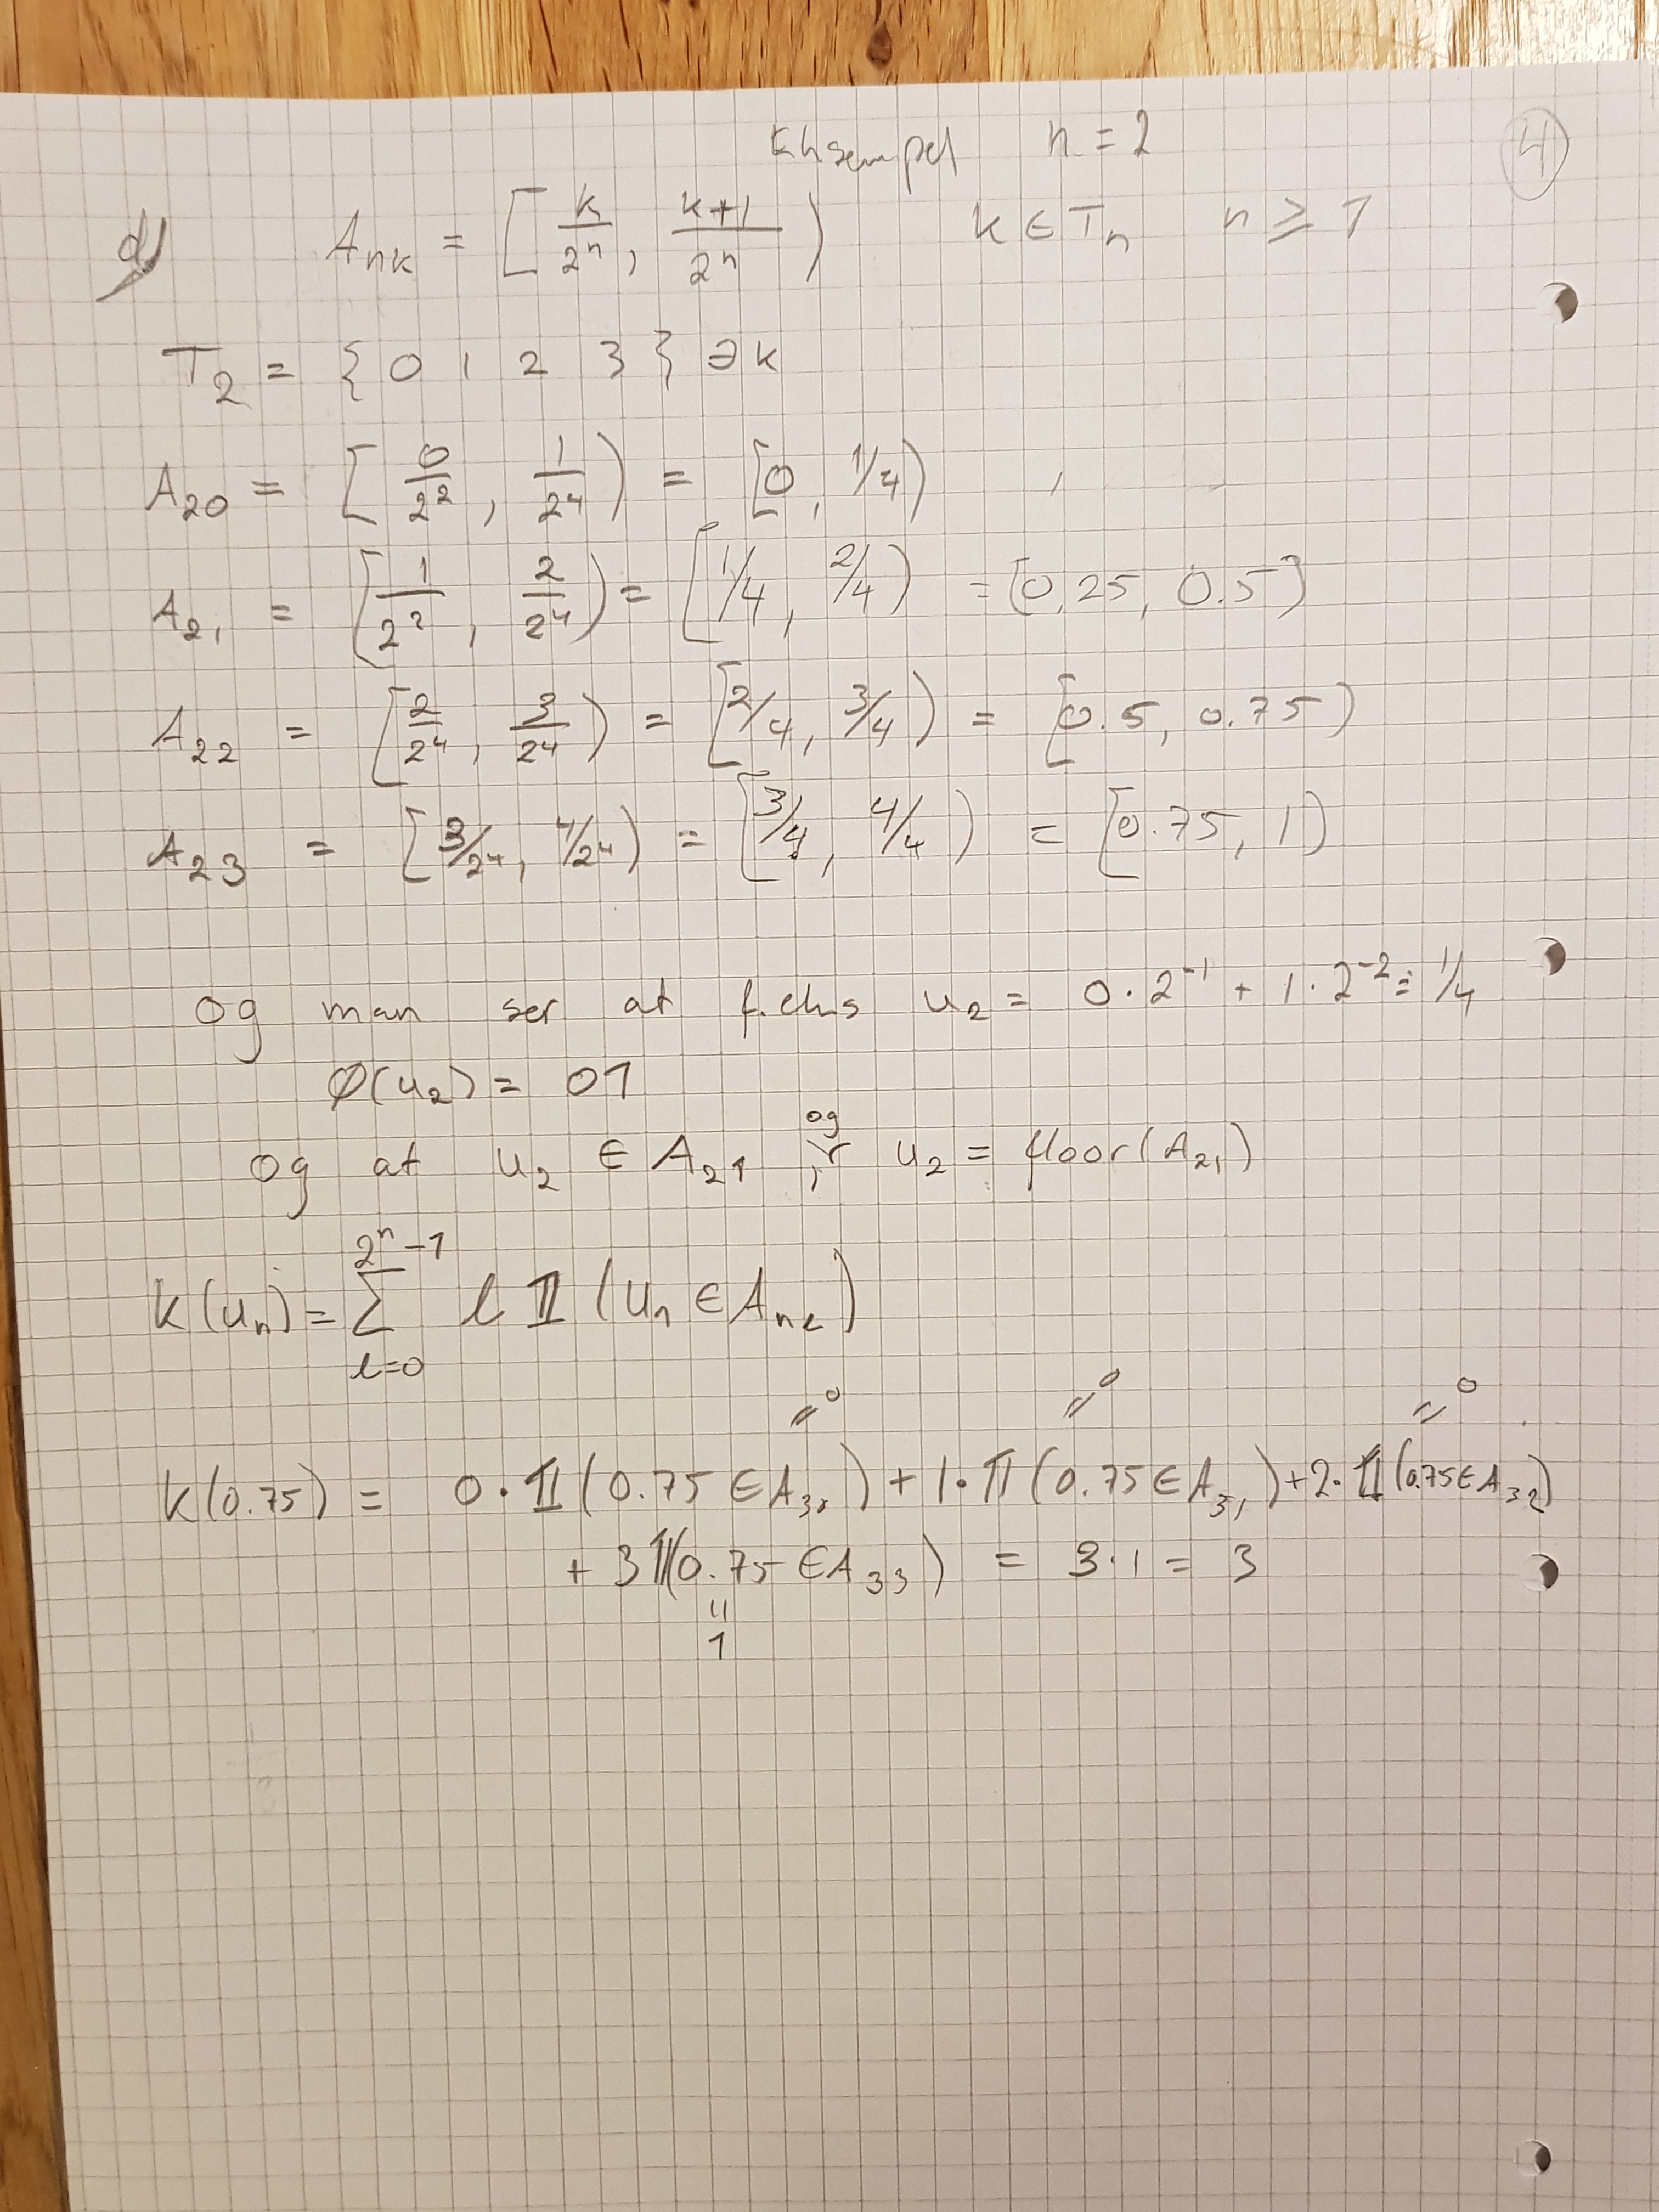 Eksempel n = 2
4
d) A_{nk} = [ k/2^n , (k+1)/2^n ) k ∈ T_n n ≥ 1
T_2 = { 0 1 2 3 } ∋ k
A_{20} = [ 0/2^2 , 1/2^4 ) = [0, 1/4)
A_{21} = [ 1/2^2 , 2/2^4 ) = [1/4, 2/4) = [0.25, 0.5)
A_{22} = [ 2/2^4 , 3/2^4 ) = [2/4, 3/4) = [0.5, 0.75)
A_{23} = [ 3/2^4 , 4/2^4 ) = [3/4, 4/4) = [0.75, 1)
og man ser at f.eks u_2 = 0·2^{-1} + 1·2^{-2} = 1/4
Ø(u_2) = 01
og at u_2 ∈ A_{21} og u_2 = floor(A_{21})
k(u_n) = ∑_{l=0}^{2^n-1} l 𝟙(u_n ∈ A_{nl})
=0 =0 =0
k(0.75) = 0·𝟙(0.75 ∈ A_{30}) + 1·𝟙(0.75 ∈ A_{31}) + 2·𝟙(0.75 ∈ A_{32})
+ 3𝟙(0.75 ∈ A_{33}) = 3·1 = 3
=
1